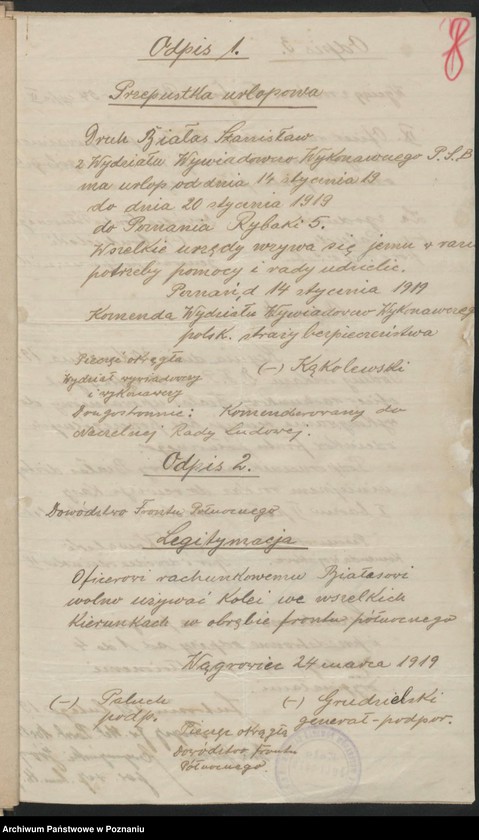 8
Odpis 1.
Przepustka urlopowa
Druh Białas Stanisław
z Wydziału Wywiadowczo Wykonawczego P.S.B
ma urlop od dnia 14 stycznia 19
do dnia 20 stycznia 1919
do Poznania Rybaki 5.
Wszelkie urzędy wzywa się jemu w razie
potrzeby pomocy i rady udzielić.
Poznań, d 14 stycznia 1919
Komenda Wydziału Wywiadowczo Wykonawczego
polsk. straży bezpieczeństwa
Pieczęć okrągła
Wydział wywiadowczy
i wykonawczy
(-) Kąkolewski
Drugostronnie: Komenderowany do
Naczelnej Rady Ludowej.
Odpis 2.
Dowództwo Frontu Północnego
Legitymacja
Oficerowi rachunkowemu Białasowi
wolno używać Kolei we wszelkich
Kierunkach w obrębie frontu północnego
Wągrowiec 24 marca 1919
(-) Paluch
podp.
(-) Grudzielski
generał-podpor.
Pieczęć okrągła
Dowództwo frontu
Północnego.
Archiwum Państwowe w Poznaniu